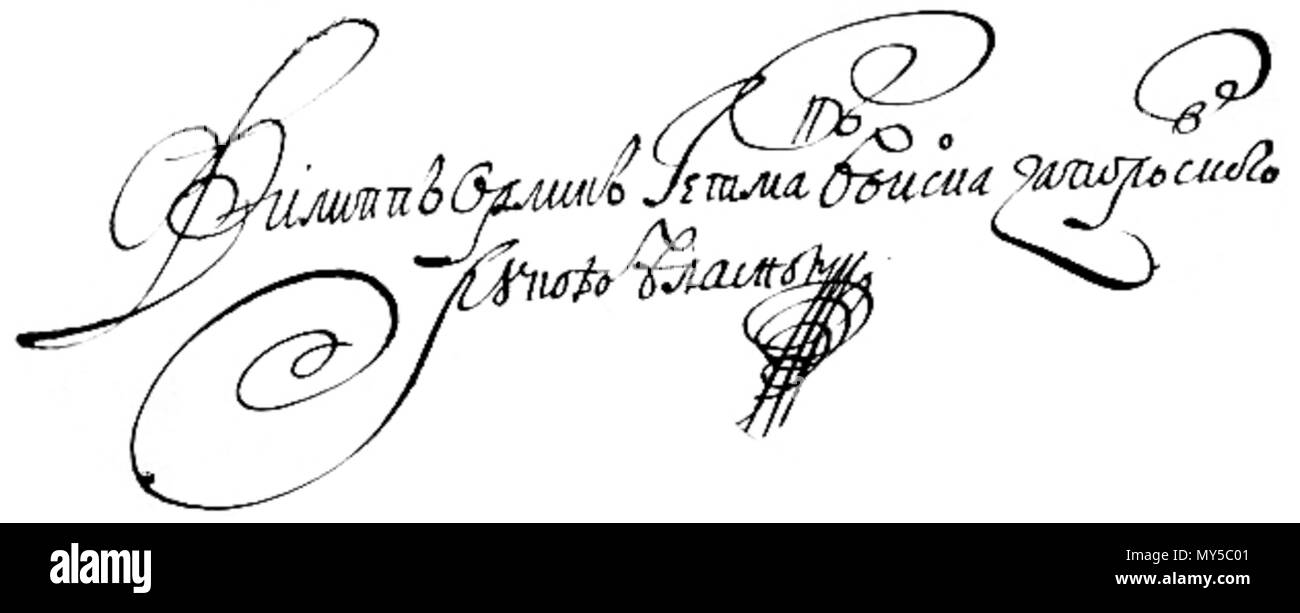 Філиппъ Орликъ Гетманъ Войска Запорозского
рукою власною
alamy
Image ID: MY5C01
www.alamy.com